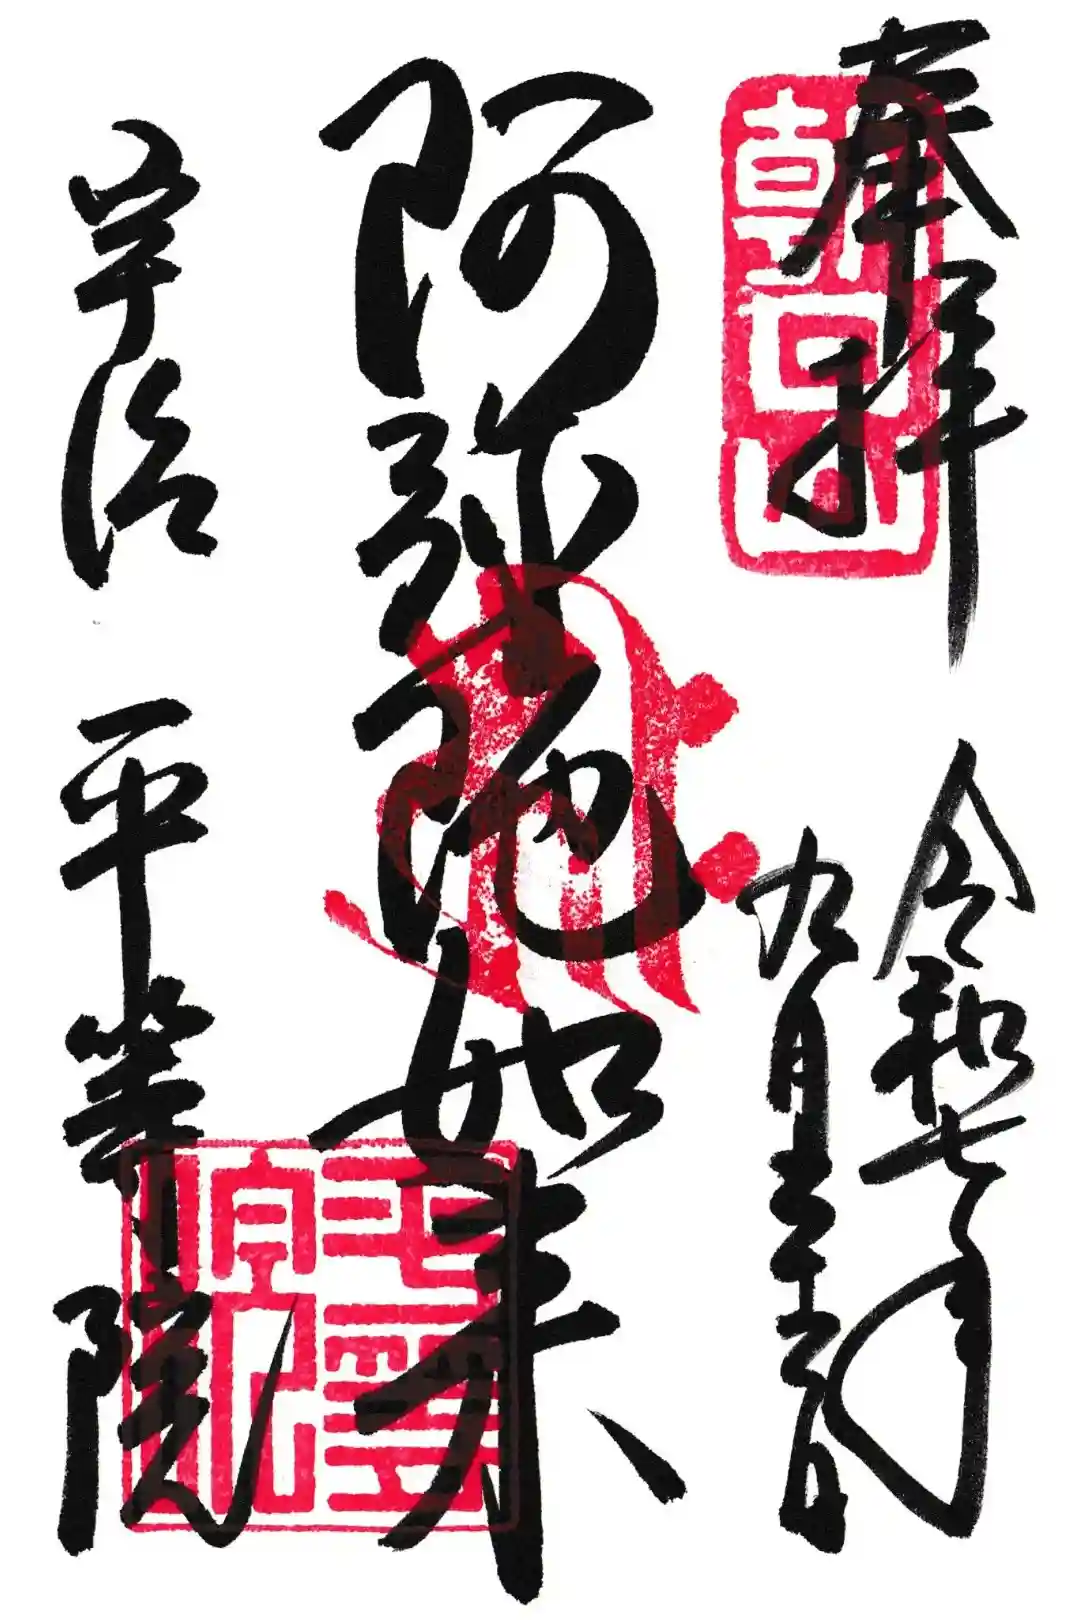 奉拝
朝日山
令和七年
九月二十二日
阿弥陀如来
宇治 平等院